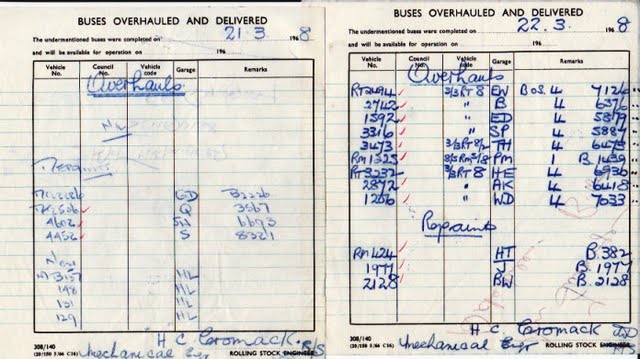 BUSES OVERHAULED AND DELIVERED
The undermentioned buses were completed on 21 . 3 . 1968
and will be available for operation on 196
Vehicle No. Council No. Vehicle code Garage Remarks
Overhauls
NIL
Repaints
GD B2226
Q 3567
4602 SW 6693
4452 S 8321
New
HL
148 HL
131 HL
129 HL
H C Cromack. R/S
308/140 Mechanical Engr
(20/150 5/66 C16) ROLLING STOCK ENGINEER
BUSES OVERHAULED AND DELIVERED
The undermentioned buses were completed on 22 . 3 . 1968
and will be available for operation on 196
Vehicle No. Council No. Vehicle code Garage Remarks
Overhauls
RT2494 3/3RT8 EW BoS 4 7126
2742 " B 4 6376
1592 " ED 4 5879
3316 " SP 4 5887
3473 3/3RT8/2 TH 4 6475
RM1325 PM 1 B.1439
RT3232 3/3RT8 HE 4 6936
2872 " AK 4 6418
1256 " WD 4 7033
Repaints
RM424 HT B.382
1971 J B.1977
2128 BW B.2128
H C Cromack
308/140 Mechanical Engr
(20/150 5/66 C16) ROLLING STOCK ENGINEER